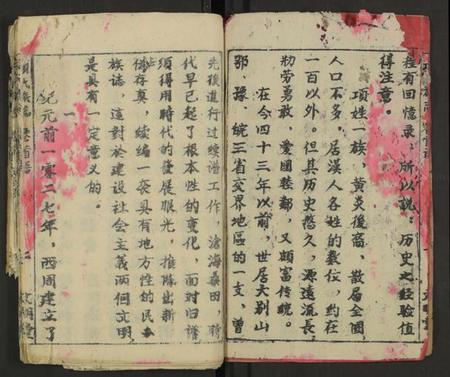 程有回憶录，所以説：历史之经验值
得注意。
项姓一族，黄炎後裔，散居全國
人口不多，居漢人各姓的叢位，約在
一百以外。但其历史悠久，源远流長，
勤劳勇敢，愛國睦鄰，又頗富传统。
在今四十三年以前，世居大别山
鄂、豫、皖三省交界地區的一支，曾
先後進行过续谱工作，滄海桑田，時
代早已起了根本性的变化，面对旧譜
須得用時代的發展眼光，推陈出新
存真，续编一套具有地方性的民
族誌，這對於建设社会主義两個文明
是具有一定意义的。
一
紀元前一零二七年，西周建立了